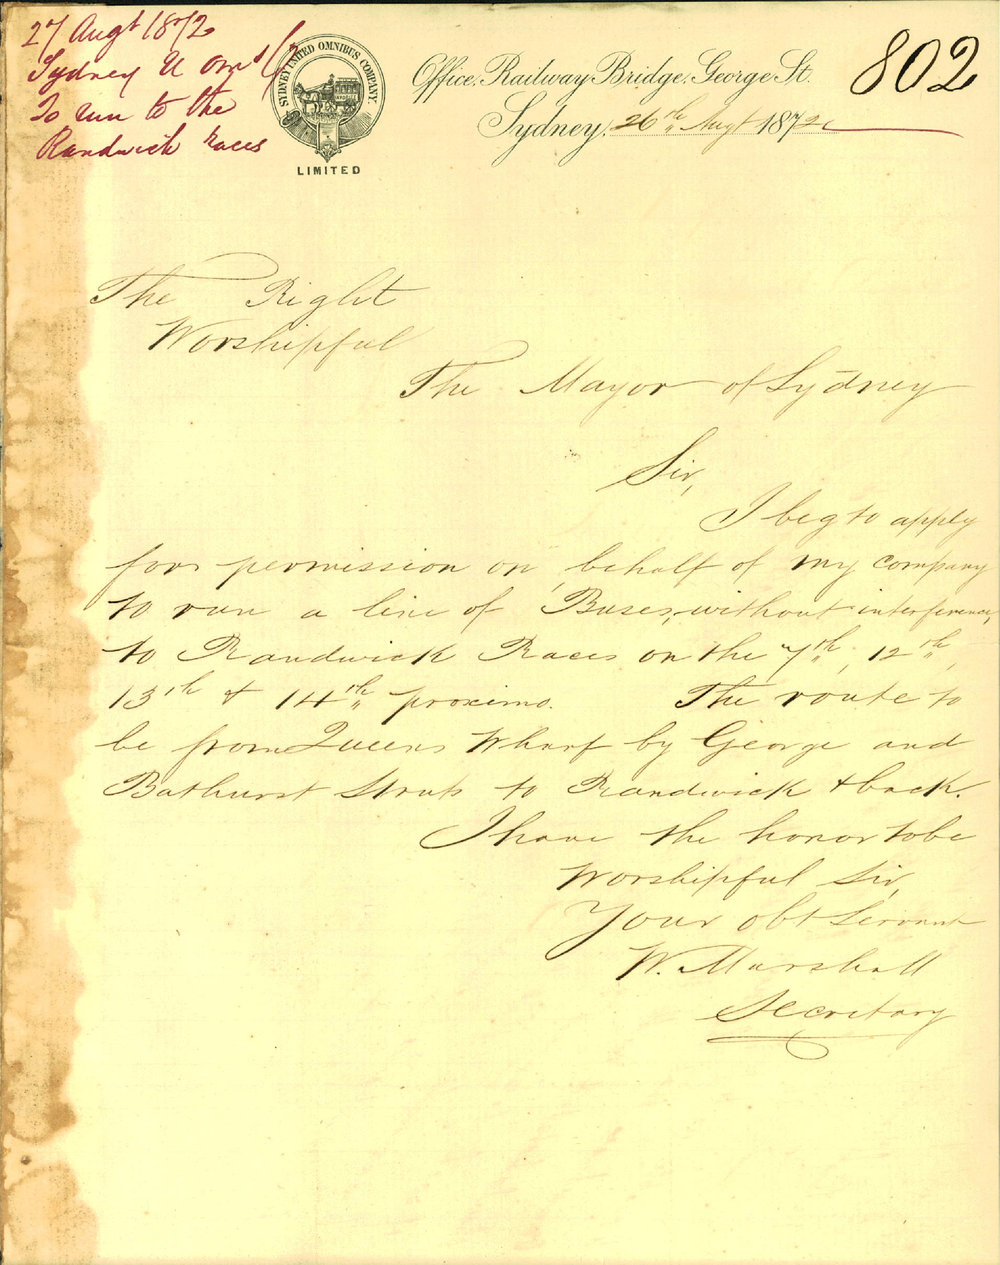 27 Augt 1872
Sydney U Omd Co
To run to the
Randwick Races
SYDNEY UNITED OMNIBUS COMPANY.
LIMITED
Office, Railway Bridge, George St.
Sydney, 26th Augt 1872
802
The Right
Worshipful
The Mayor of Sydney
Sir,
I beg to apply
for permission on behalf of my company
to run a line of Buses, without interference,
to Randwick Races on the 7th, 12th,
13th & 14th proximo. The route to
be from Queens Wharf by George and
Bathurst Streets to Randwick & back.
I have the honor to be
Worshipful Sir,
Your obt Servant
W. Marshall
Secretary